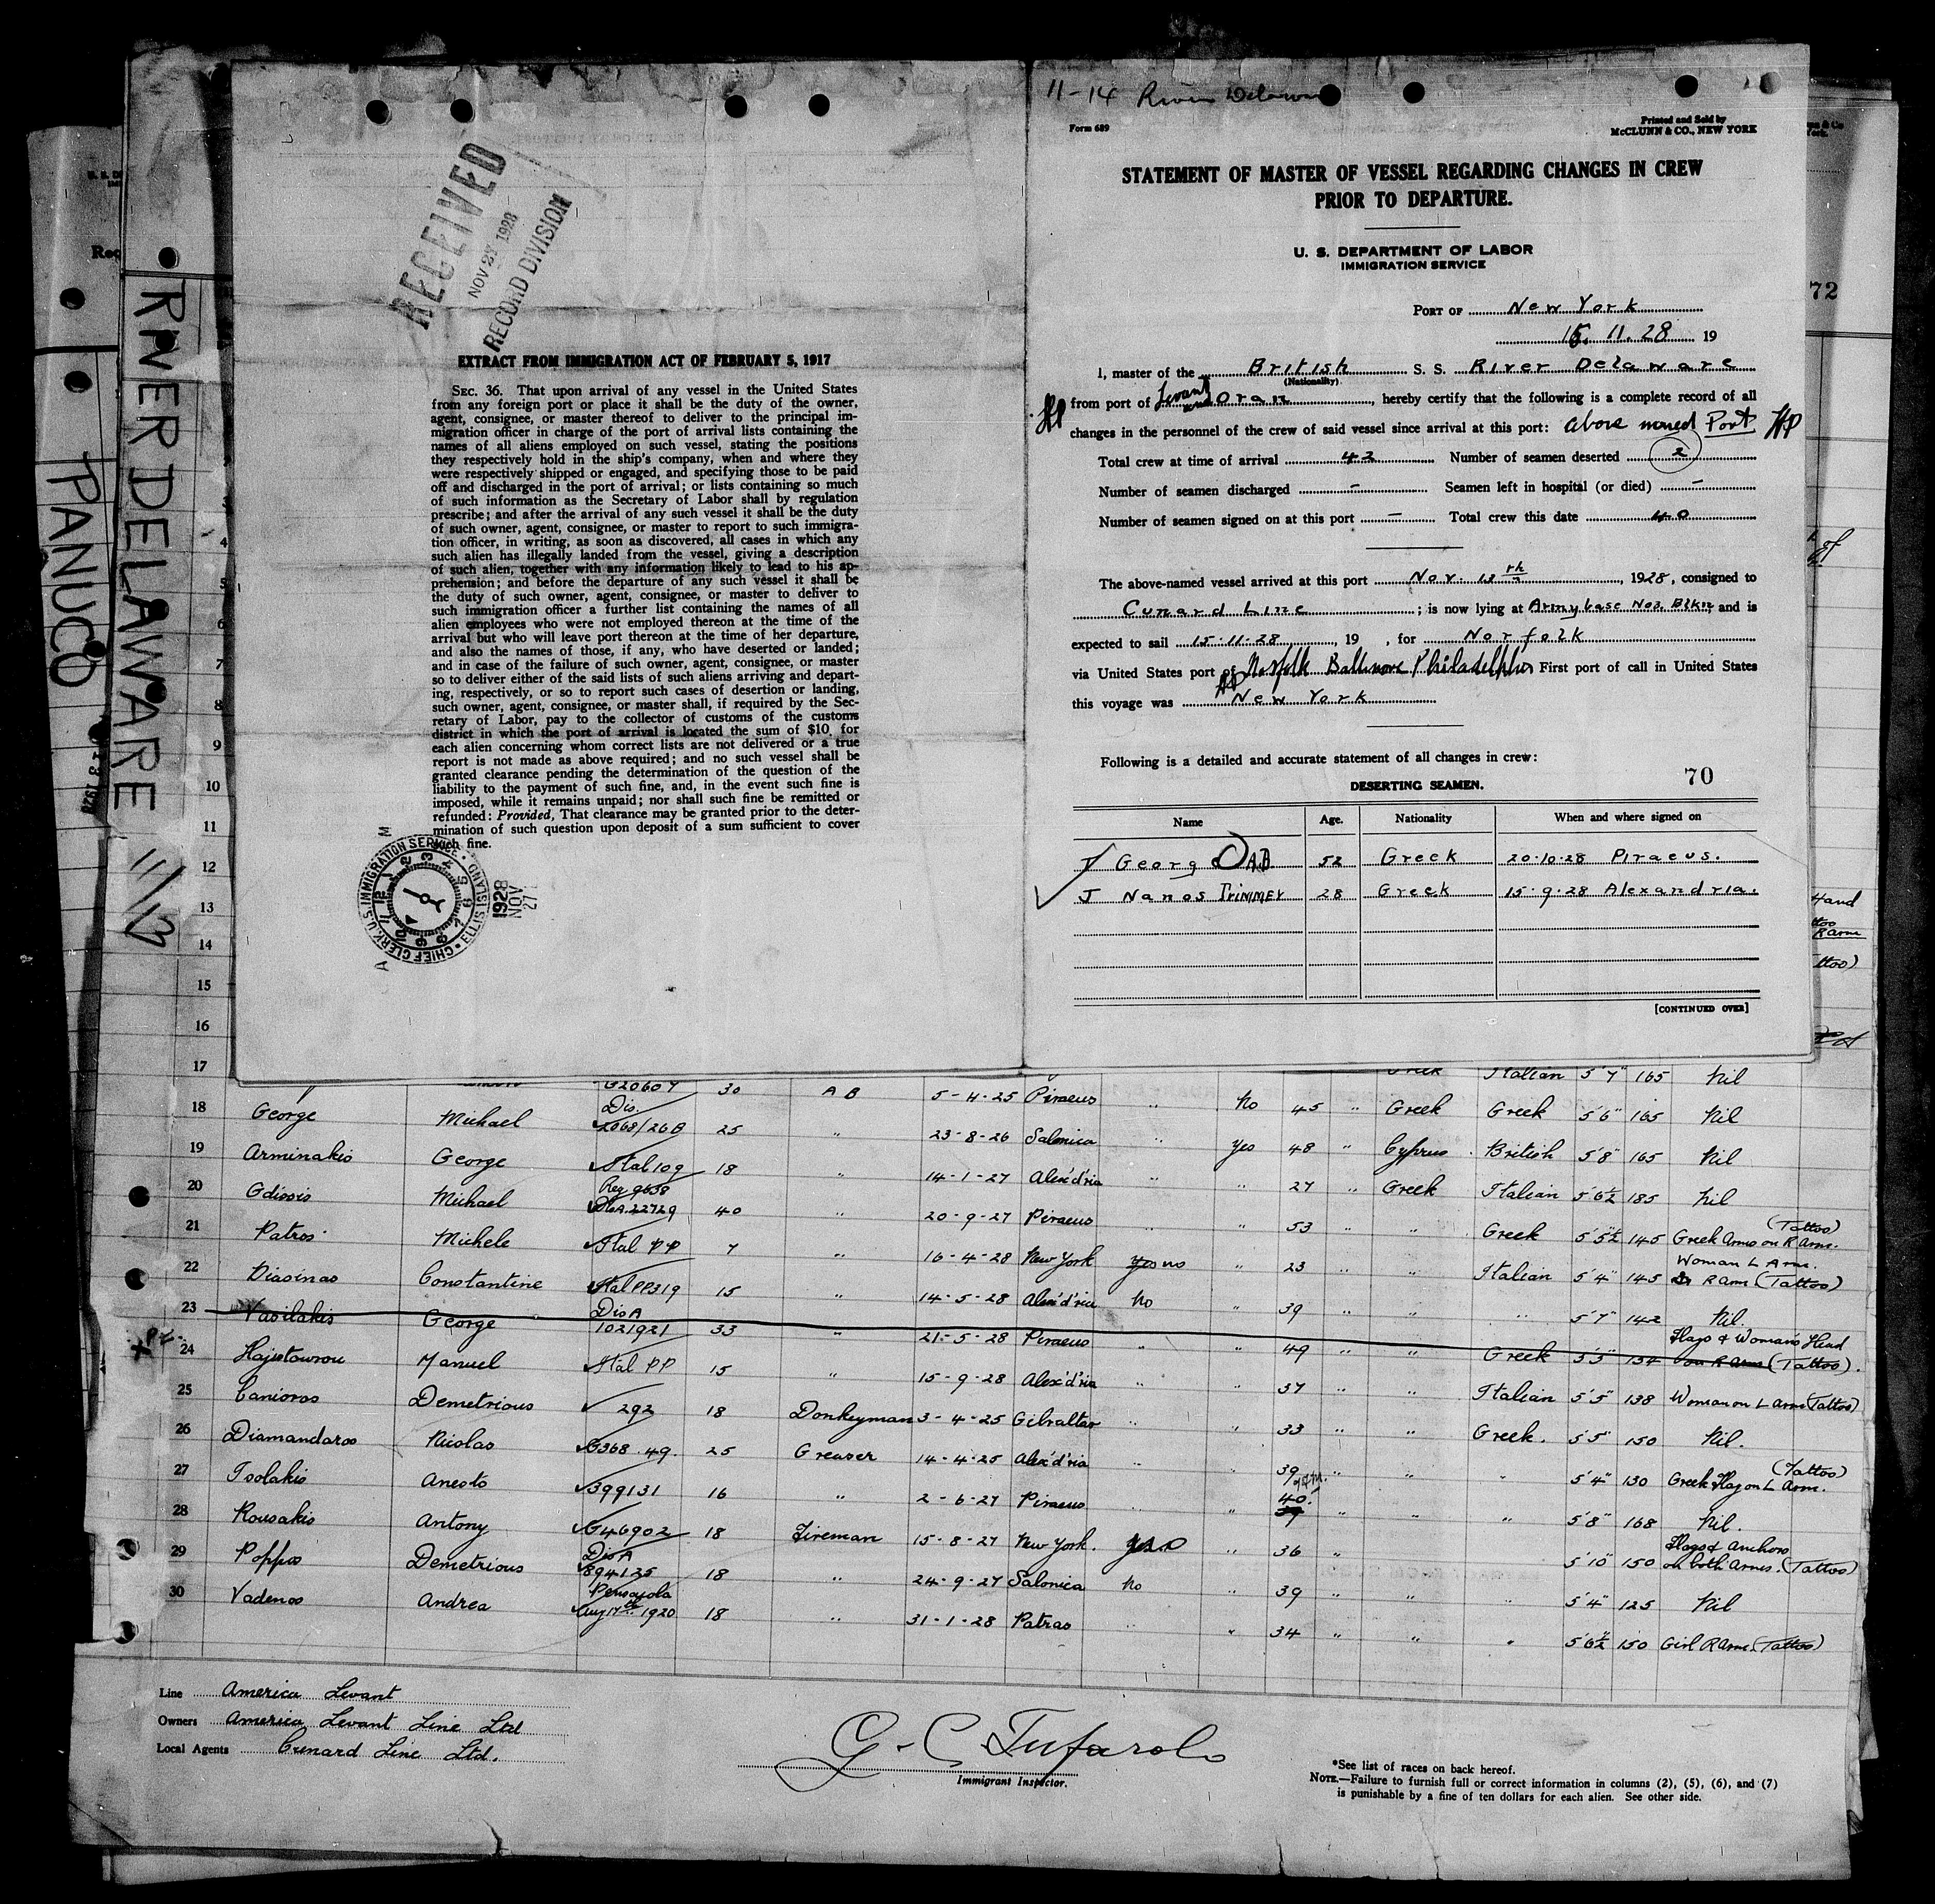 11-14 River Delaware
Form 689
Printed and Sold by
McCLUNN & CO., NEW YORK
STATEMENT OF MASTER OF VESSEL REGARDING CHANGES IN CREW
PRIOR TO DEPARTURE.
U. S. DEPARTMENT OF LABOR
IMMIGRATION SERVICE
PORT OF New York
15. 11. 28 19
I, master of the British S. S. River Delaware
(Nationality)
from port of Levant and Oran, hereby certify that the following is a complete record of all
changes in the personnel of the crew of said vessel since arrival at this port: above named Port HP
Total crew at time of arrival 42 Number of seamen deserted 2
Number of seamen discharged - Seamen left in hospital (or died) -
Number of seamen signed on at this port - Total crew this date 40
The above-named vessel arrived at this port Nov. 13th, 1928, consigned to
Cunard Line; is now lying at Army base No2. Bkln and is
expected to sail 15.11.28, 19 , for Norfolk
via United States port of Norfolk Baltimore Philadelphia First port of call in United States
this voyage was New York
Following is a detailed and accurate statement of all changes in crew:
70
DESERTING SEAMEN.
Name Age. Nationality When and where signed on
Georg A.B. 52 Greek 20.10.28 Piraeus.
J Nanos Trimmer 28 Greek 15.9.28 Alexandria.
[CONTINUED OVER]
RECEIVED
NOV 27 1928
RECORD DIVISION
EXTRACT FROM IMMIGRATION ACT OF FEBRUARY 5, 1917
SEC. 36. That upon arrival of any vessel in the United States
from any foreign port or place it shall be the duty of the owner,
agent, consignee, or master thereof to deliver to the principal im-
migration officer in charge of the port of arrival lists containing the
names of all aliens employed on such vessel, stating the positions
they respectively hold in the ship's company, when and where they
were respectively shipped or engaged, and specifying those to be paid
off and discharged in the port of arrival; or lists containing so much
of such information as the Secretary of Labor shall by regulation
prescribe; and after the arrival of any such vessel it shall be the duty
of such owner, agent, consignee, or master to report to such immigra-
tion officer, in writing, as soon as discovered, all cases in which any
such alien has illegally landed from the vessel, giving a description
of such alien, together with any information likely to lead to his ap-
prehension; and before the departure of any such vessel it shall be
the duty of such owner, agent, consignee, or master to deliver to
such immigration officer a further list containing the names of all
alien employees who were not employed thereon at the time of the
arrival but who will leave port thereon at the time of her departure,
and also the names of those, if any, who have deserted or landed;
and in case of the failure of such owner, agent, consignee, or master
so to deliver either of the said lists of such aliens arriving and depart-
ing, respectively, or so to report such cases of desertion or landing,
such owner, agent, consignee, or master shall, if required by the Sec-
retary of Labor, pay to the collector of customs of the customs
district in which the port of arrival is located the sum of $10 for
each alien concerning whom correct lists are not delivered or a true
report is not made as above required; and no such vessel shall be
granted clearance pending the determination of the question of the
liability to the payment of such fine, and, in the event such fine is
imposed, while it remains unpaid; nor shall such fine be remitted or
refunded: Provided, That clearance may be granted prior to the deter-
mination of such question upon deposit of a sum sufficient to cover
such fine.
CHIEF CLERK, U.S. IMMIGRATION SERVICE • ELLIS ISLAND
1928 NOV 27
RIVER DELAWARE 11/13
PANUCO
72
4
5
6
7
8
9
10
11
12
13
14
15
16
17 G20607 30 A B 5-4-25 Piraeus " No 45 " Greek Italian 5'7" 165 Nil
18 George Michael Dis. 2068/26B 25 " 23-8-26 Salonica " Yes 48 " Greek Greek 5'6" 165 Nil
19 Arminakis George Ital 109 18 " 14-1-27 Alex'd'ria " " 27 " Cyprus British 5'8" 165 Nil
20 Gdissis Michael Reg 9638 DisA.22729 40 " 20-9-27 Piraeus " " 53 " Greek Italian 5'6½ 185 Nil
21 Patros Michele Ital PP 7 " 16-4-28 New York Yes no " 23 " " Greek 5'5½" 145 Greek Arms on R Arm. (Tattoo)
22 Diasinos Constantine Ital PP319 15 " 14-5-28 Alex'd'ria No " 39 " " Italian 5'4" 145 Woman L Arm. R Arm (Tattoo)
23 Vasilakis George DisA 1021921 33 " 21-5-28 Piraeus " " 49 " " " 5'7" 142 Nil.
24 Hajistowrou Manuel Ital PP 15 " 15-9-28 Alex'd'ria " " 37 " " Greek 5'3" 134 Flags & Womans Head on R Arm (Tattoo).
25 Canioros Demetrious 292 18 Donkeyman 3-4-25 Gibraltar " " 33 " " Italian 5'5" 138 Woman on L Arm (Tattoo)
26 Diamandaros Nicolas G368.49. 25 Greaser 14-4-25 Alex'd'ria " " 39 " " Greek. 5'5" 150 Nil.
27 Tsolakis Anesto 399131 16 " 2-6-27 Piraeus " " 40. " " " 5'4" 130 Greek Flag on L Arm. (Tattoo)
28 Rousakis Antony G46902 18 Fireman 15-8-27 New York. " 36 " " " 5'8" 168 Nil.
29 Poppos Demetrious DisA 894125 18 " 24-9-27 Salonica No " 39 " " " 5'10" 150 Flags & Anchors on both Arms. (Tattoo)
30 Vadenos Andrea Pensacola Aug 17th 1920 18 " 31-1-28 Patras " " 34 " " " 5'4" 125 Nil
5'6½" 150 Girl R Arm (Tattoo)
Line America Levant
Owners America Levant Line Ltd
Local Agents Cunard Line Ltd.
G. C. Tufarolo
Immigrant Inspector.
*See list of races on back hereof.
NOTE.—Failure to furnish full or correct information in columns (2), (5), (6), and (7)
is punishable by a fine of ten dollars for each alien. See other side.